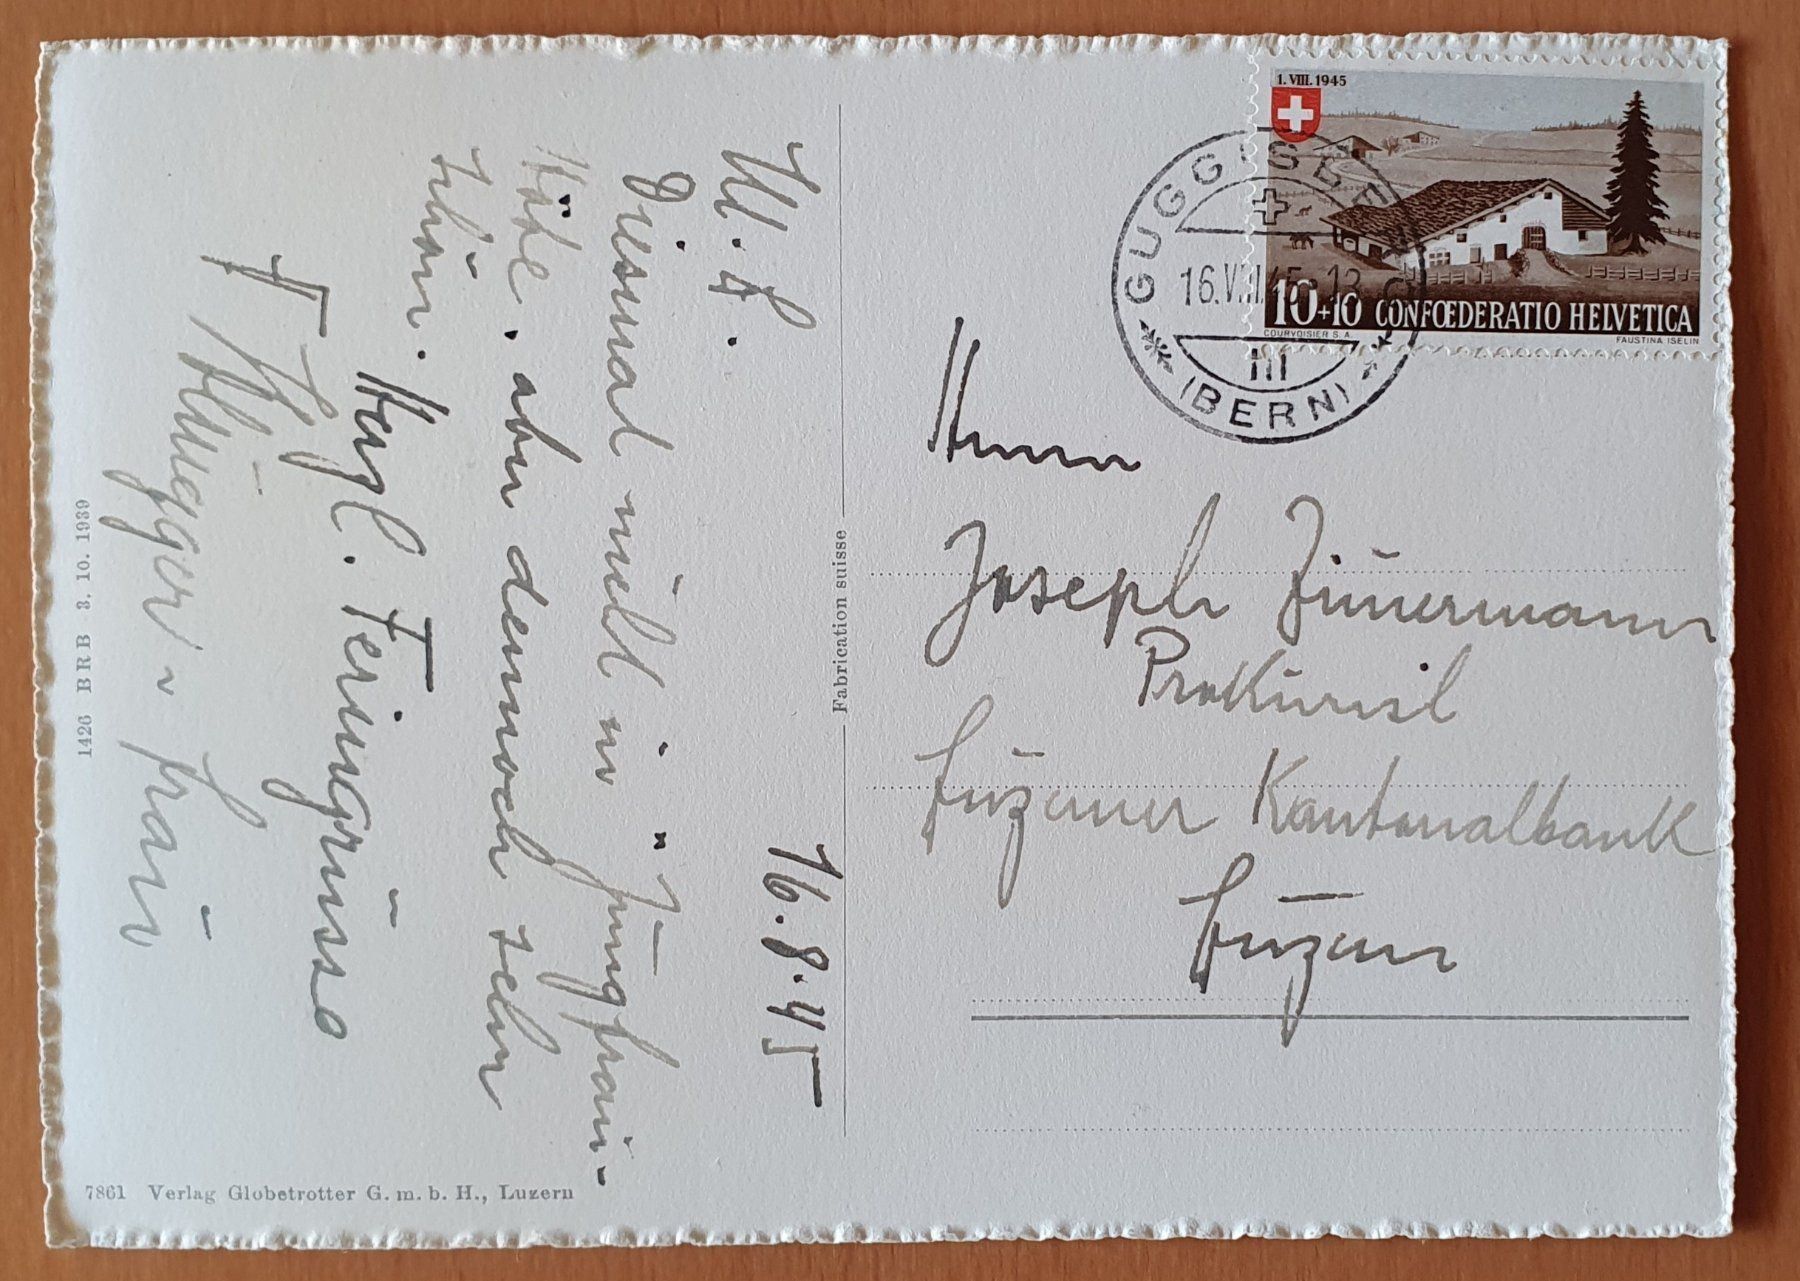 16.8.45
Diesmal nicht in "Jungfrau-
höhe", aber dennoch sehr
schön.
Herzl. Feriengrüsse
Frau
Fabrication suisse
1426 BRB 3. 10. 1939
7861 Verlag Globetrotter G. m. b. H., Luzern
1. VIII. 1945
10+10 CONFŒDERATIO HELVETICA
COURVOISIER S. A.
FAUSTINA ISELIN
GUGGISBERG
16.VIII.45.
(BERN)
Herrn
Joseph Zimmermann
Prokurist
Luzerner Kantonalbank
Luzern